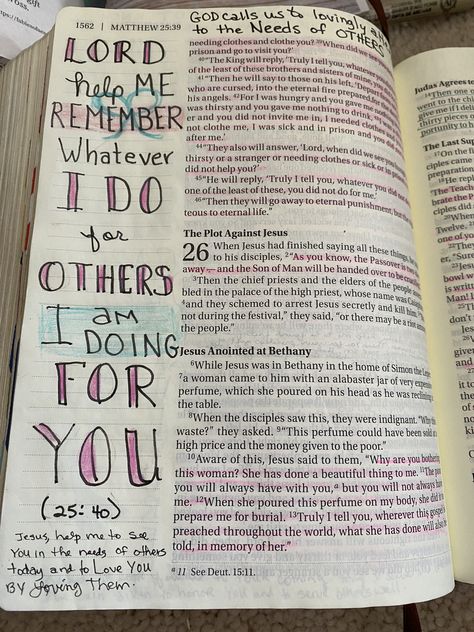 1562 | MATTHEW 25:39
GOD calls us to lovingly
to the Needs of OTHERS
LORD
help ME
REMEMBER
Whatever
I DO
for
OTHERS
I am
DOING
FOR
YOU
(25:40)
Jesus, help me to see
You in the needs of others
today and to Love You
BY Loving Them.
needing clothes and clothe you? 39When did we see you
prison and go to visit you?'
40"The King will reply, 'Truly I tell you, whatever you
of the least of these brothers and sisters of mine, you
41"Then he will say to those on his left, 'Depart
who are cursed, into the eternal fire prepared for the
his angels. 42For I was hungry and you gave me
was thirsty and you gave me nothing to drink,
and you did not invite me in, I needed clothes and
not clothe me, I was sick and in prison and you did
after me.'
44"They also will answer, 'Lord, when did we see you
thirsty or a stranger or needing clothes or sick or in
did not help you?'
45"He will reply, 'Truly I tell you, whatever you did not
one of the least of these, you did not do for me.'
46"Then they will go away to eternal punishment, but the
teous to eternal life."
The Plot Against Jesus
26 When Jesus had finished saying all these things, he
to his disciples, 2"As you know, the Passover is two
away — and the Son of Man will be handed over to be
3Then the chief priests and the elders of the people
bled in the palace of the high priest, whose name was
4and they schemed to arrest Jesus secretly and kill him.
not during the festival," they said, "or there may be a riot
the people."
Jesus Anointed at Bethany
6While Jesus was in Bethany in the home of Simon the
7a woman came to him with an alabaster jar of very expensive
perfume, which she poured on his head as he was reclining
the table.
8When the disciples saw this, they were indignant. "Why
waste?" they asked. 9"This perfume could have been sold
high price and the money given to the poor."
10Aware of this, Jesus said to them, "Why are you bothering
this woman? She has done a beautiful thing to me. 11The
you will always have with you,a but you will not always have
me. 12When she poured this perfume on my body, she did it
prepare me for burial. 13Truly I tell you, wherever this gospel is
preached throughout the world, what she has done will also be
told, in memory of her."
a 11 See Deut. 15:11.
Judas Agrees
The Last Sup